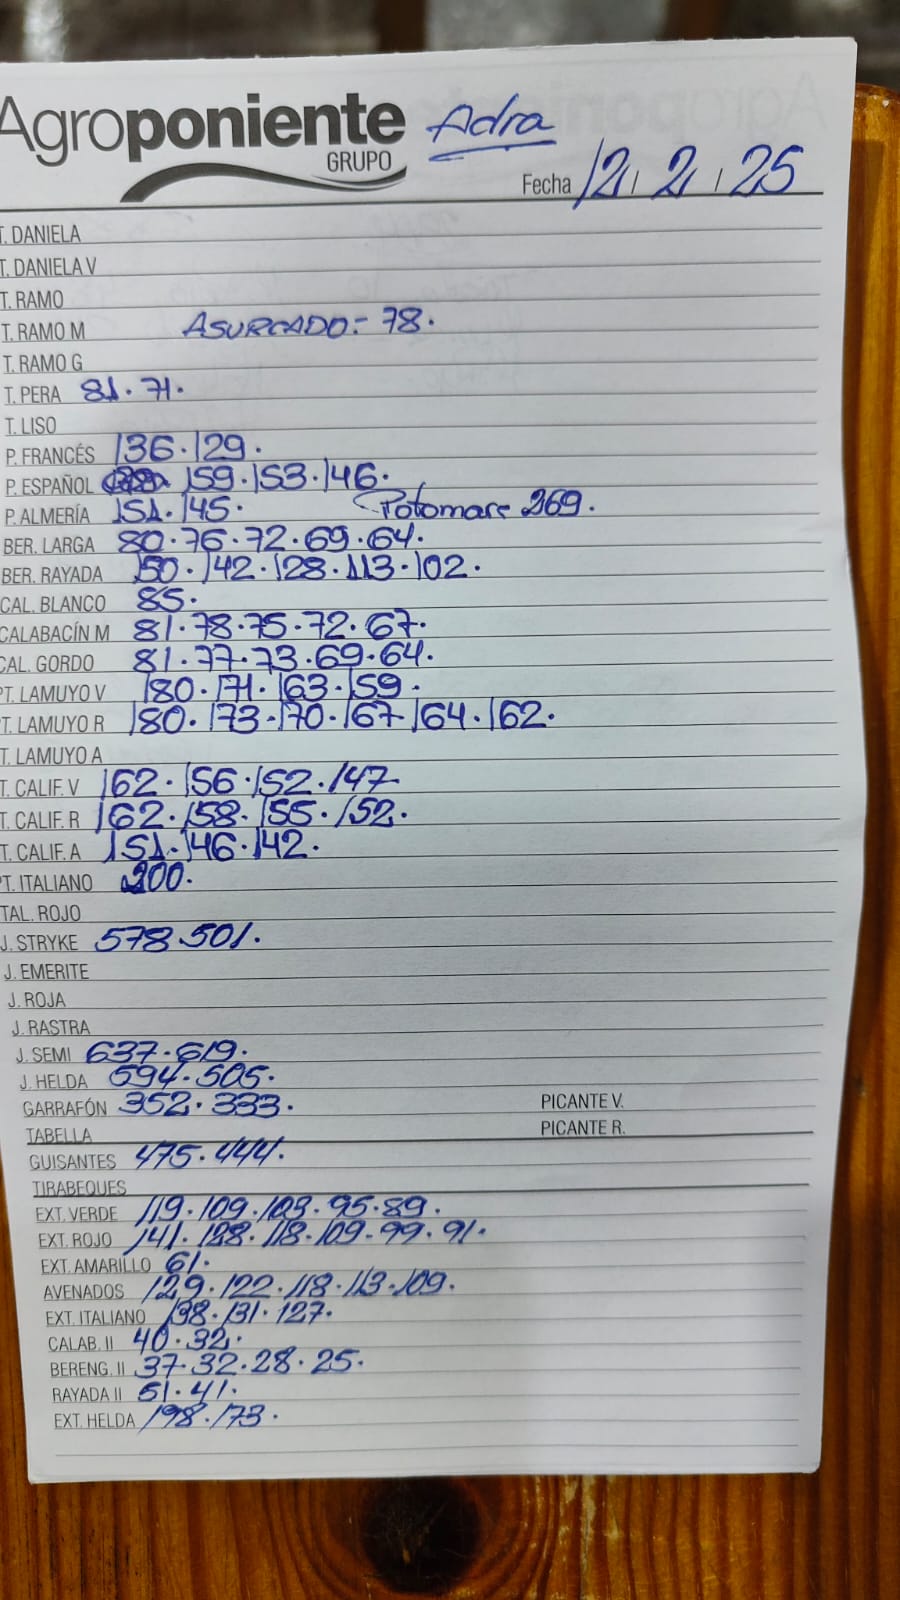 Agroponiente Adra
GRUPO
Fecha 12 / 2 / 25
T. DANIELA
T. DANELA V
T. RAMO
T. RAMO M ASURCADO.- 78.
T. RAMO G
T. PERA 81. 71.
T. LISO
P. FRANCÉS 136. 129.
P. ESPAÑOL 159. 153. 146.
P. ALMERÍA 151. 145. Potomare 269.
BER. LARGA 80. 76. 72. 69. 64.
BER. RAYADA 150. 142. 128. 113. 102.
CAL. BLANCO 85.
CALABACÍN M 81. 78. 75. 72. 67.
CAL. GORDO 81. 77. 73. 69. 64.
PT. LAMUYO V 180. 171. 163. 159.
PT. LAMUYO R 180. 173. 170. 167 164. 162.
T. LAMUYO A
T. CALIF. V 162. 156. 152. 147
T. CALIF. R 162. 158. 155. 152.
T. CALIF. A 151. 146. 142.
PT. ITALIANO 200.
TAL. ROJO
J. STRYKE 578. 501.
J. EMERITE
J. ROJA
J. RASTRA
J. SEMI 637. 619.
J. HELDA 594. 505.
GARRAFÓN 352. 333. PICANTE V.
TABELLA PICANTE R.
GUISANTES 475. 444.
TIRABEQUES
EXT. VERDE 119. 109. 103. 95. 89.
EXT. ROJO 141. 128. 118. 109. 99. 91.
EXT. AMARILLO 61.
AVENADOS 129. 122. 118. 113. 109.
EXT. ITALIANO 138. 131. 127.
CALAB. II 40. 32.
BERENG. II 37. 32. 28. 25.
RAYADA II 51. 41.
EXT. HELDA 198. 173.